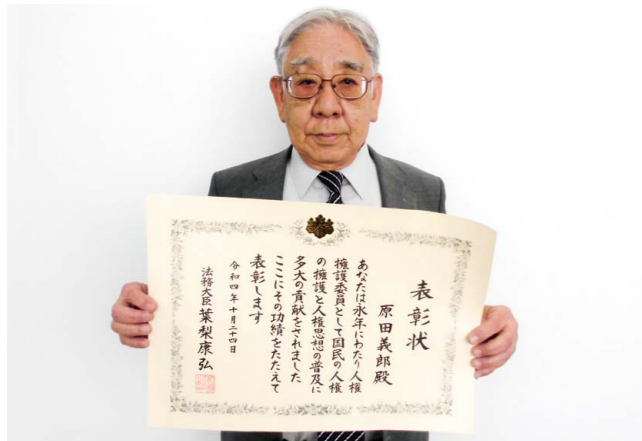 表彰状
原田義郎殿
あなたは永年にわたり人権
擁護委員として国民の人権
の擁護と人権思想の普及に
多大の貢献をされました
ここにその功績をたたえて
表彰します
令和四年十月二十四日
法務大臣 葉梨康弘